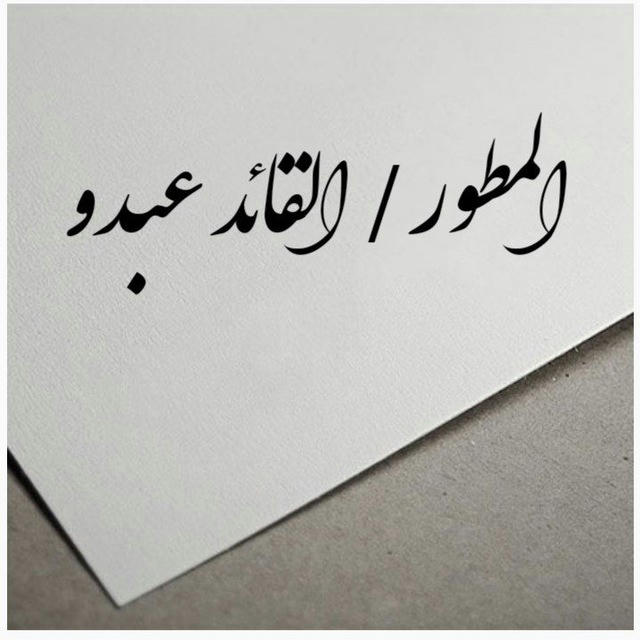 المطور / القائد عبدو